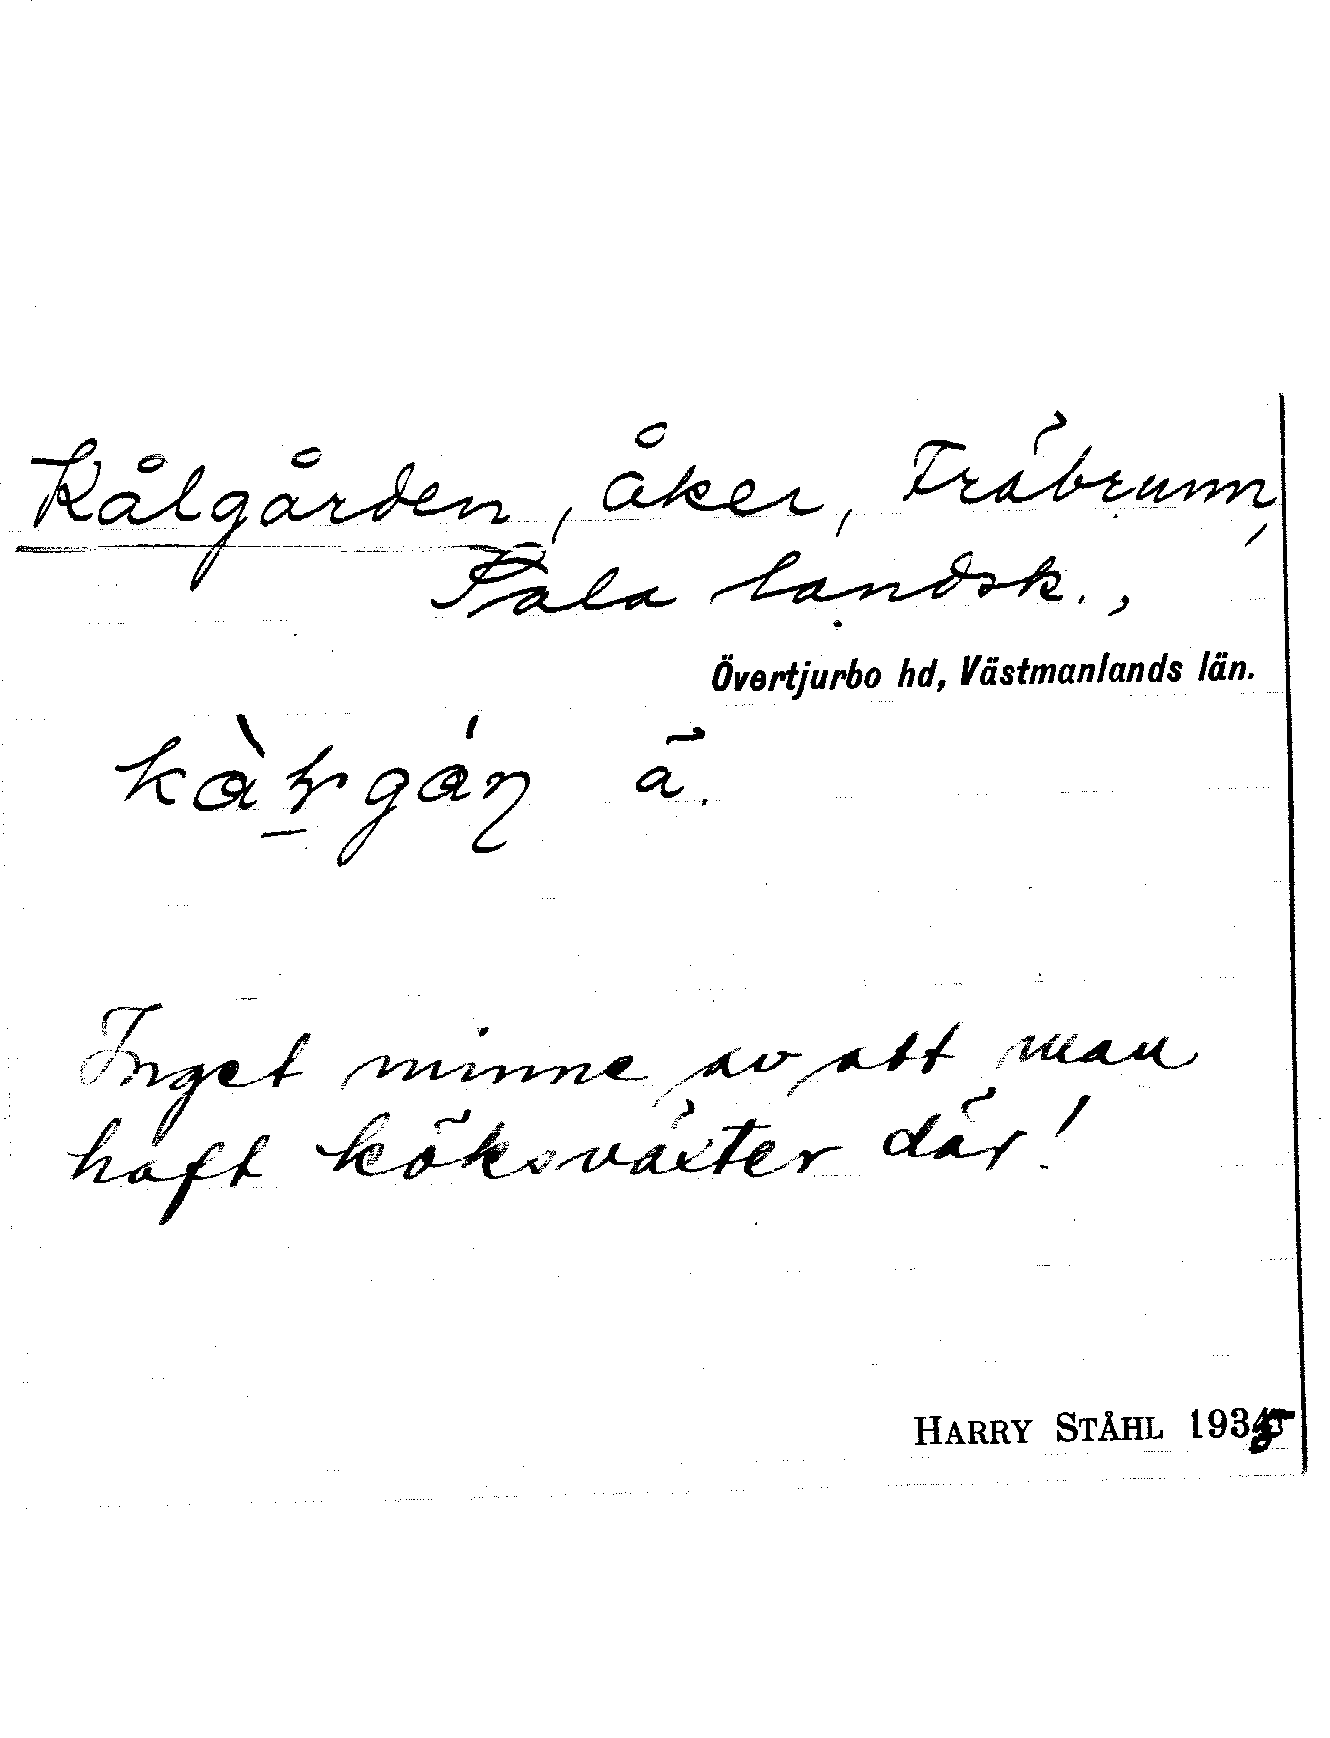 Kålgården, åker, Fräbrunn,
Sala landsk.,
Övertjurbo hd, Västmanlands län.
ä.
Inget minne av att man
haft köksväxter där!
HARRY STÅHL 1935